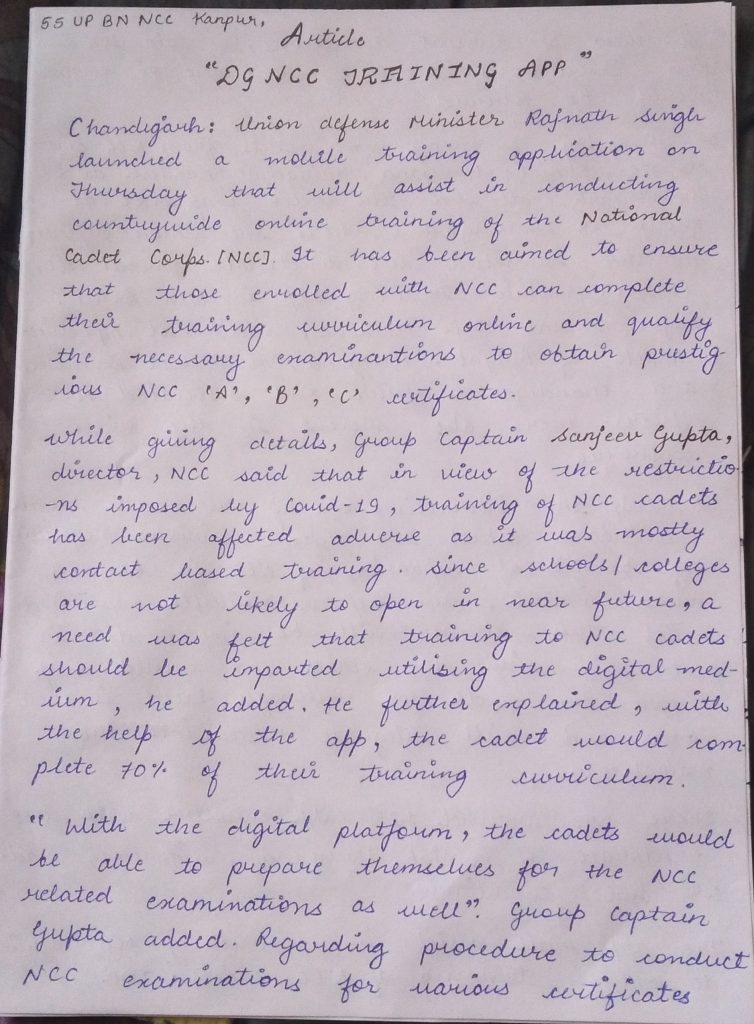 55 UP BN NCC Kanpur,
Article
"DG NCC TRAINING APP"
Chandigarh: Union defense Minister Rajnath Singh
launched a mobile training application on
Thursday that will assist in conducting
countrywide online training of the National
Cadet Corps. [NCC]. It has been aimed to ensure
that those enrolled with NCC can complete
their training curriculum online and qualify
the necessary examinantions to obtain prestig-
ious NCC 'A', 'B', 'C' certificates.
While giving details, Group Captain Sanjeev Gupta,
director, NCC said that in view of the restrictio-
-ns imposed by Covid-19, training of NCC cadets
has been affected adverse as it was mostly
contact based training. Since schools/colleges
are not likely to open in near future, a
need was felt that training to NCC cadets
should be imparted utilising the digital med-
ium, he added. He further explained, with
the help of the app, the cadet would com-
plete 70% of their training curriculum.
"With the digital platform, the cadets would
be able to prepare themselves for the NCC
related examinations as well". Group Captain
Gupta added. Regarding procedure to conduct
NCC examinations for various certificates